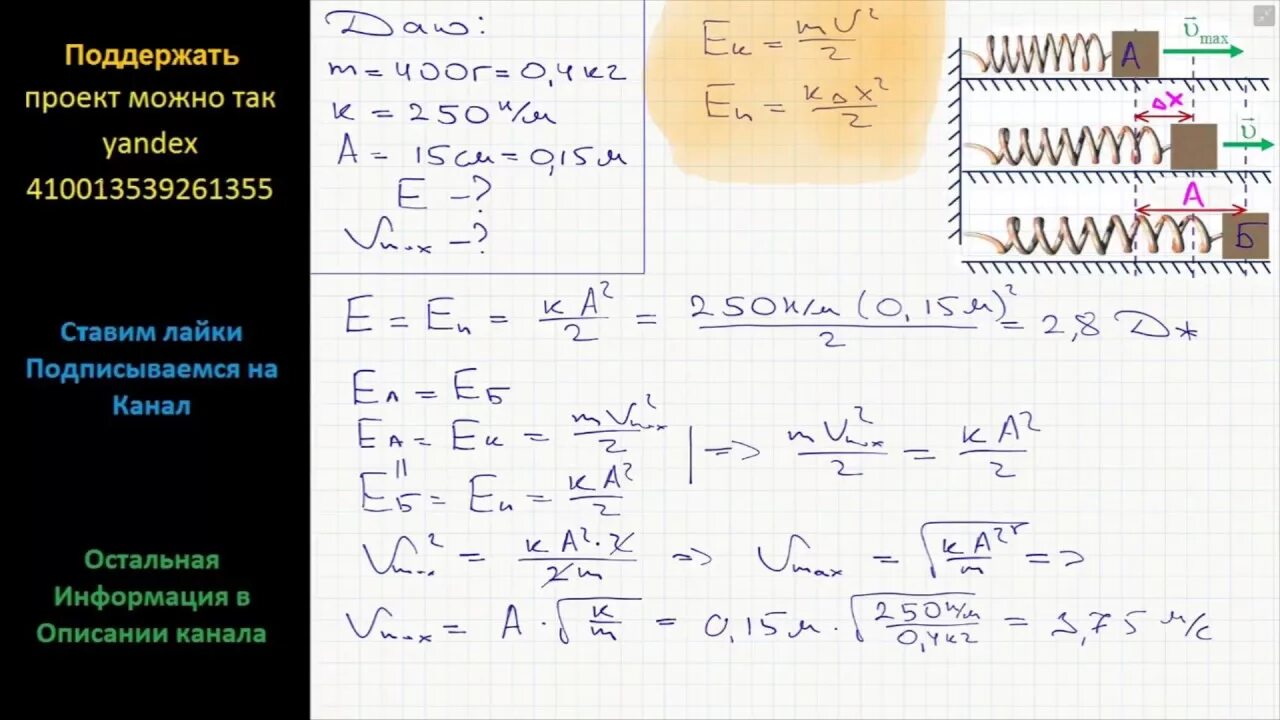 Поддержать
проект можно так
yandex
410013539261355
Ставим лайки
Подписываемся на
Канал
Остальная
Информация в
Описании канала
Дано:
m = 400г = 0,4кг
к = 250 н/м
А = 15см = 0,15м
E - ?
Vmax - ?
Eк = mV²/2
Eп = кΔx²/2
А
υ⃗max
Δx
υ⃗
А
Б
E = Eп = кA²/2 = 250н/м (0,15м)²/2 = 2,8 Дж
EА = EБ
EА = Eк = mVmax²/2 | => mVmax²/2 = кA²/2
||
EБ = Eп = кA²/2
Vmax² = кA²·2/2m => Vmax = √кA²/m =>
Vmax = A · √к/m = 0,15м · √250н/м/0,4кг = 3,75 м/с